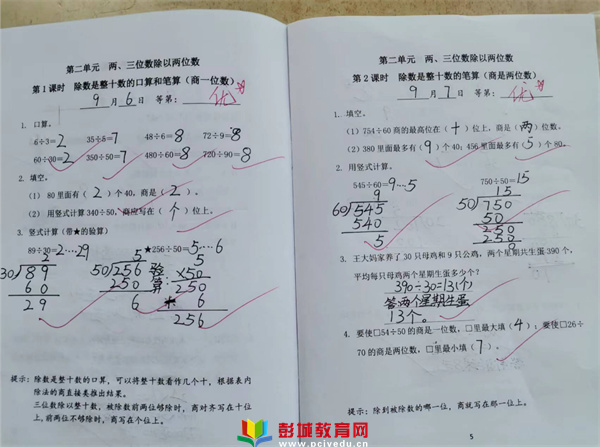 第二单元 两、三位数除以两位数
第1课时 除数是整十数的口算和笔算（商一位数）
9月6日 等第：优
1. 口算。
6÷3=2 35÷5=7 48÷6=8 72÷9=8
60÷30=2 350÷50=7 480÷60=8 720÷90=8
2. 填空。
（1） 80里面有（2）个40，商是（2）。
（2） 用竖式计算340÷50，商应写在（个）位上。
3. 竖式计算（带★的验算）
89÷30=2……29 ★256÷50=5……6
2
30 89
60
29
5
50 256
250
6
验算：
5
×50
250
+ 6
256
提示：除数是整十数的口算，可以将整十数看作几个十，根据表内
除法的商直接类推出结果。
三位数除以整十数，被除数前两位够除时，商对齐写在十位
上，前两位不够除时，商写在个位上。
第二单元 两、三位数除以两位数
第2课时 除数是整十数的笔算（商是两位数）
9月7日 等第：优
1. 填空。
（1）754÷60商的最高位在（十）位上，商是（两）位数。
（2）380里面最多有（9）个40；456里面最多有（5）个80。
2. 用竖式计算。
545÷60=9……5 750÷50=15
9
60 545
540
5
15
50 750
50
250
250
0
3. 王大妈家养了30只母鸡和9只公鸡，两个星期共生蛋390个，
平均每只母鸡两个星期生蛋多少个？
390÷30=13(个)
答两个星期生蛋
13个。
4. 要使□54÷50的商是一位数，□里最大填（4）；要使□26÷
70的商是两位数，□里最小填（7）。
提示：除到被除数的哪一位，商就写在那一位上。
5
彭城教育网
www.pcjyedu.com